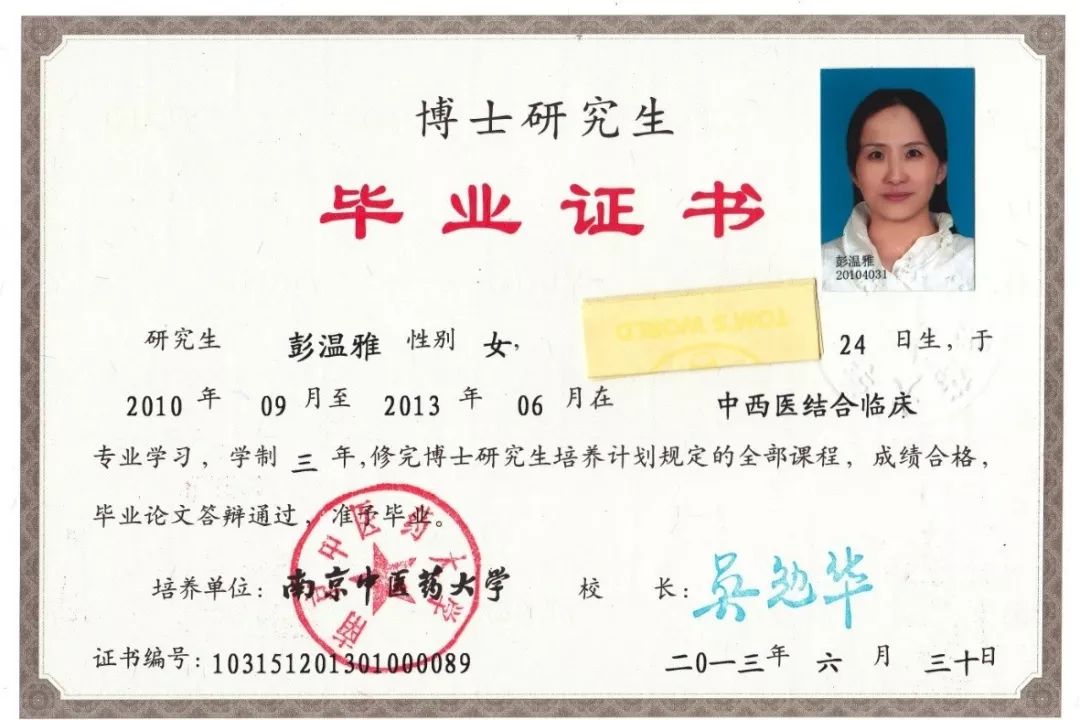 博士研究生
毕业证书
彭温雅
20104031
研究生 彭温雅 性别 女, 24 日生，于
2010 年 09 月至 2013 年 06 月在 中西医结合临床
专业学习，学制 三 年,修完博士研究生培养计划规定的全部课程，成绩合格，
毕业论文答辩通过，准予毕业。
南京中医药大学
培养单位：南京中医药大学 校 长：吴勉华
证书编号：103151201301000089 二0一三年 六 月 三十日